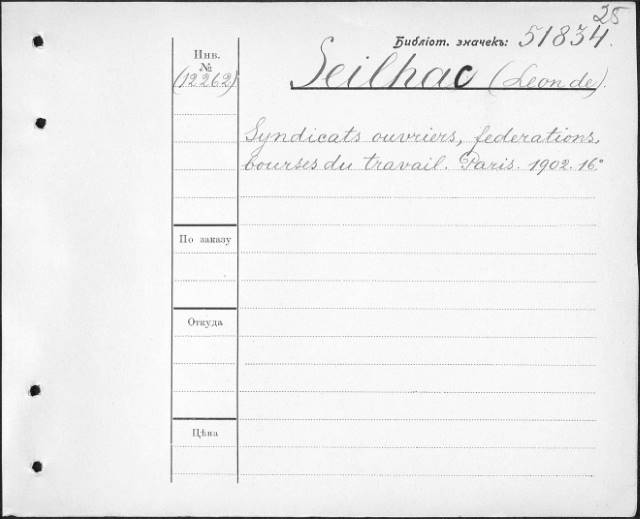 25
Библіот. значекъ: 51834.
Инв.
№
(12262)
Seilhac (Leon de).
Syndicats ouvriers, federations,
bourses du travail. Paris. 1902. 16°
По заказу
Откуда
Цѣна